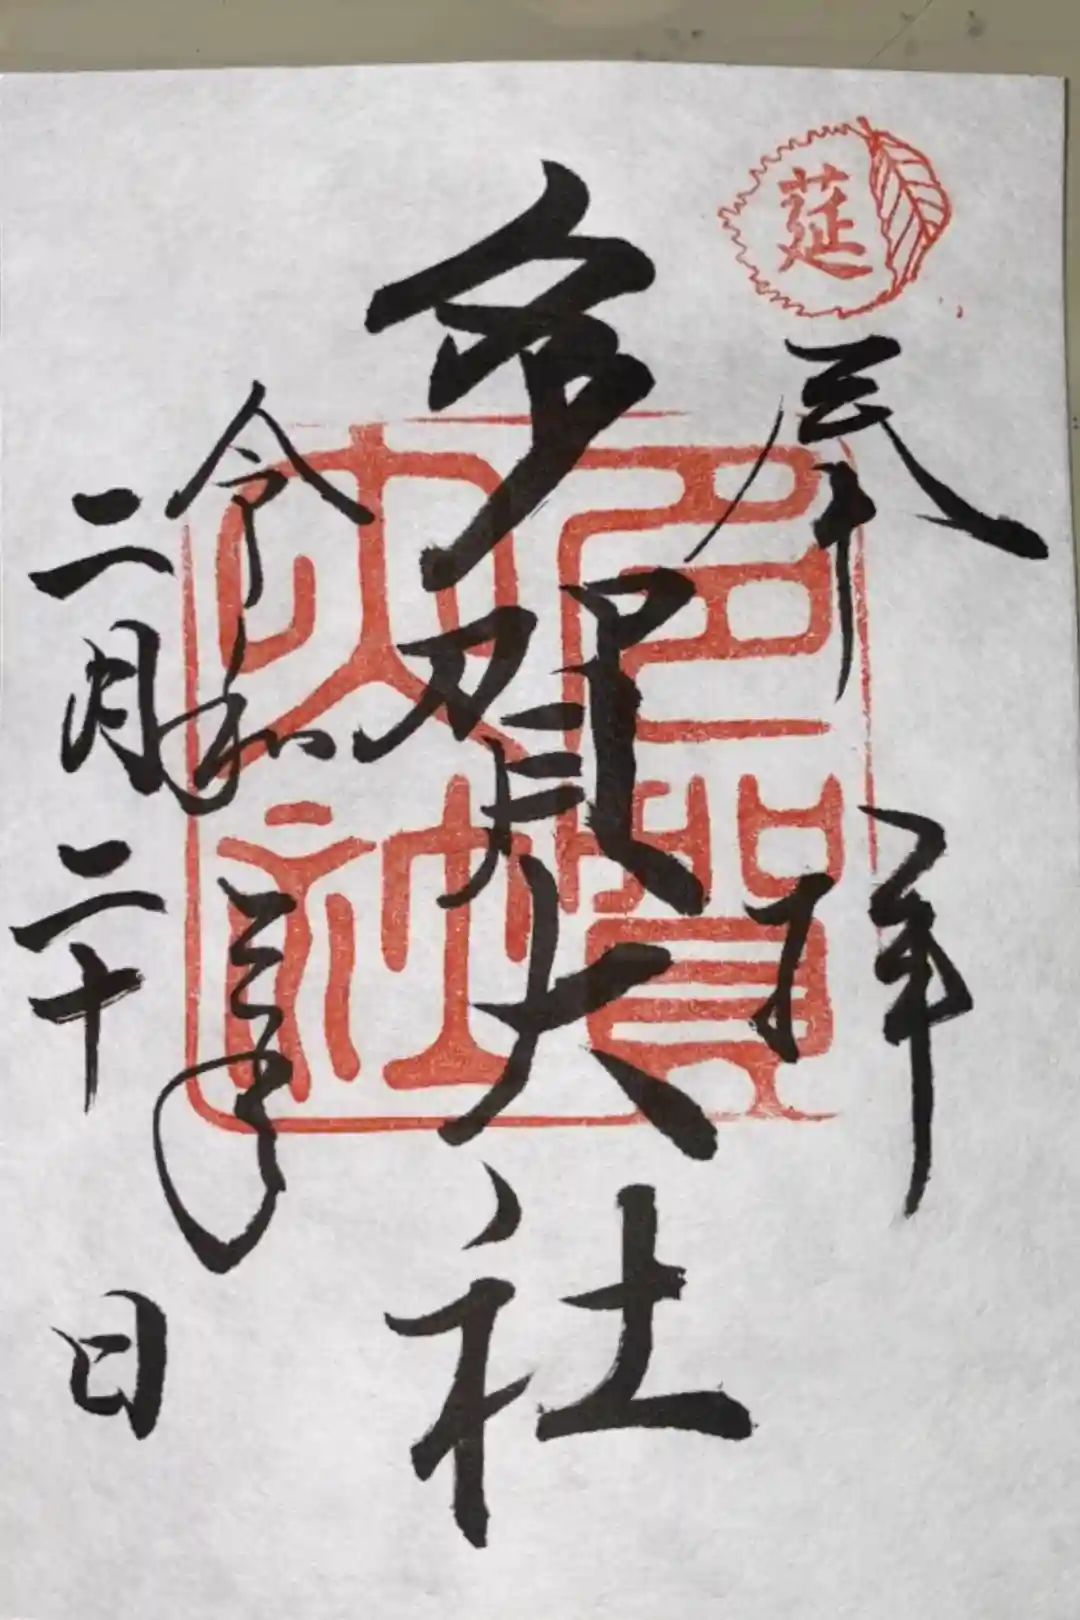 莚
奉拝
多賀大社
多賀
大社
令和三年
二月二十日